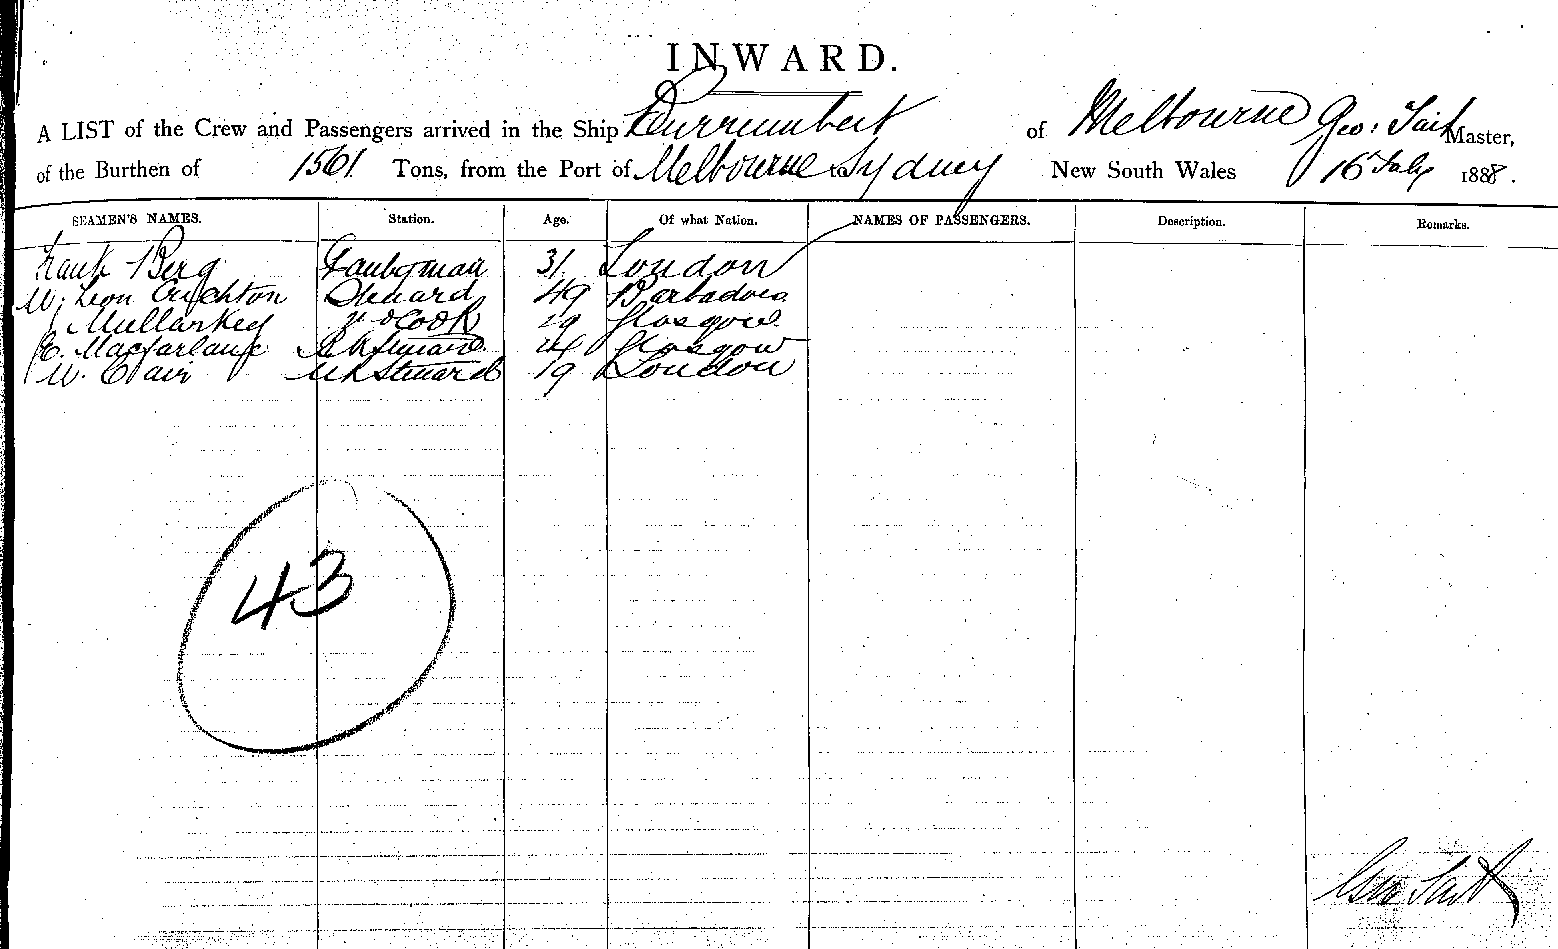 INWARD.
A LIST of the Crew and Passengers arrived in the Ship Burrumbeet of Melbourne Geo: Tait Master,
of the Burthen of 1561 Tons, from the Port of Melbourne to Sydney New South Wales 16 July 1888.
SEAMEN'S NAMES. Station. Age. Of what Nation. NAMES OF PASSENGERS. Description. Remarks.
Frank Berg 31 London
W. Leon Crichton Steward 49 Barbadoes
Mullarkey Cook 29 Glasgow
E. Macfarlane Steward 24 Glasgow
W. Steward 19 London
43
Geo Tait